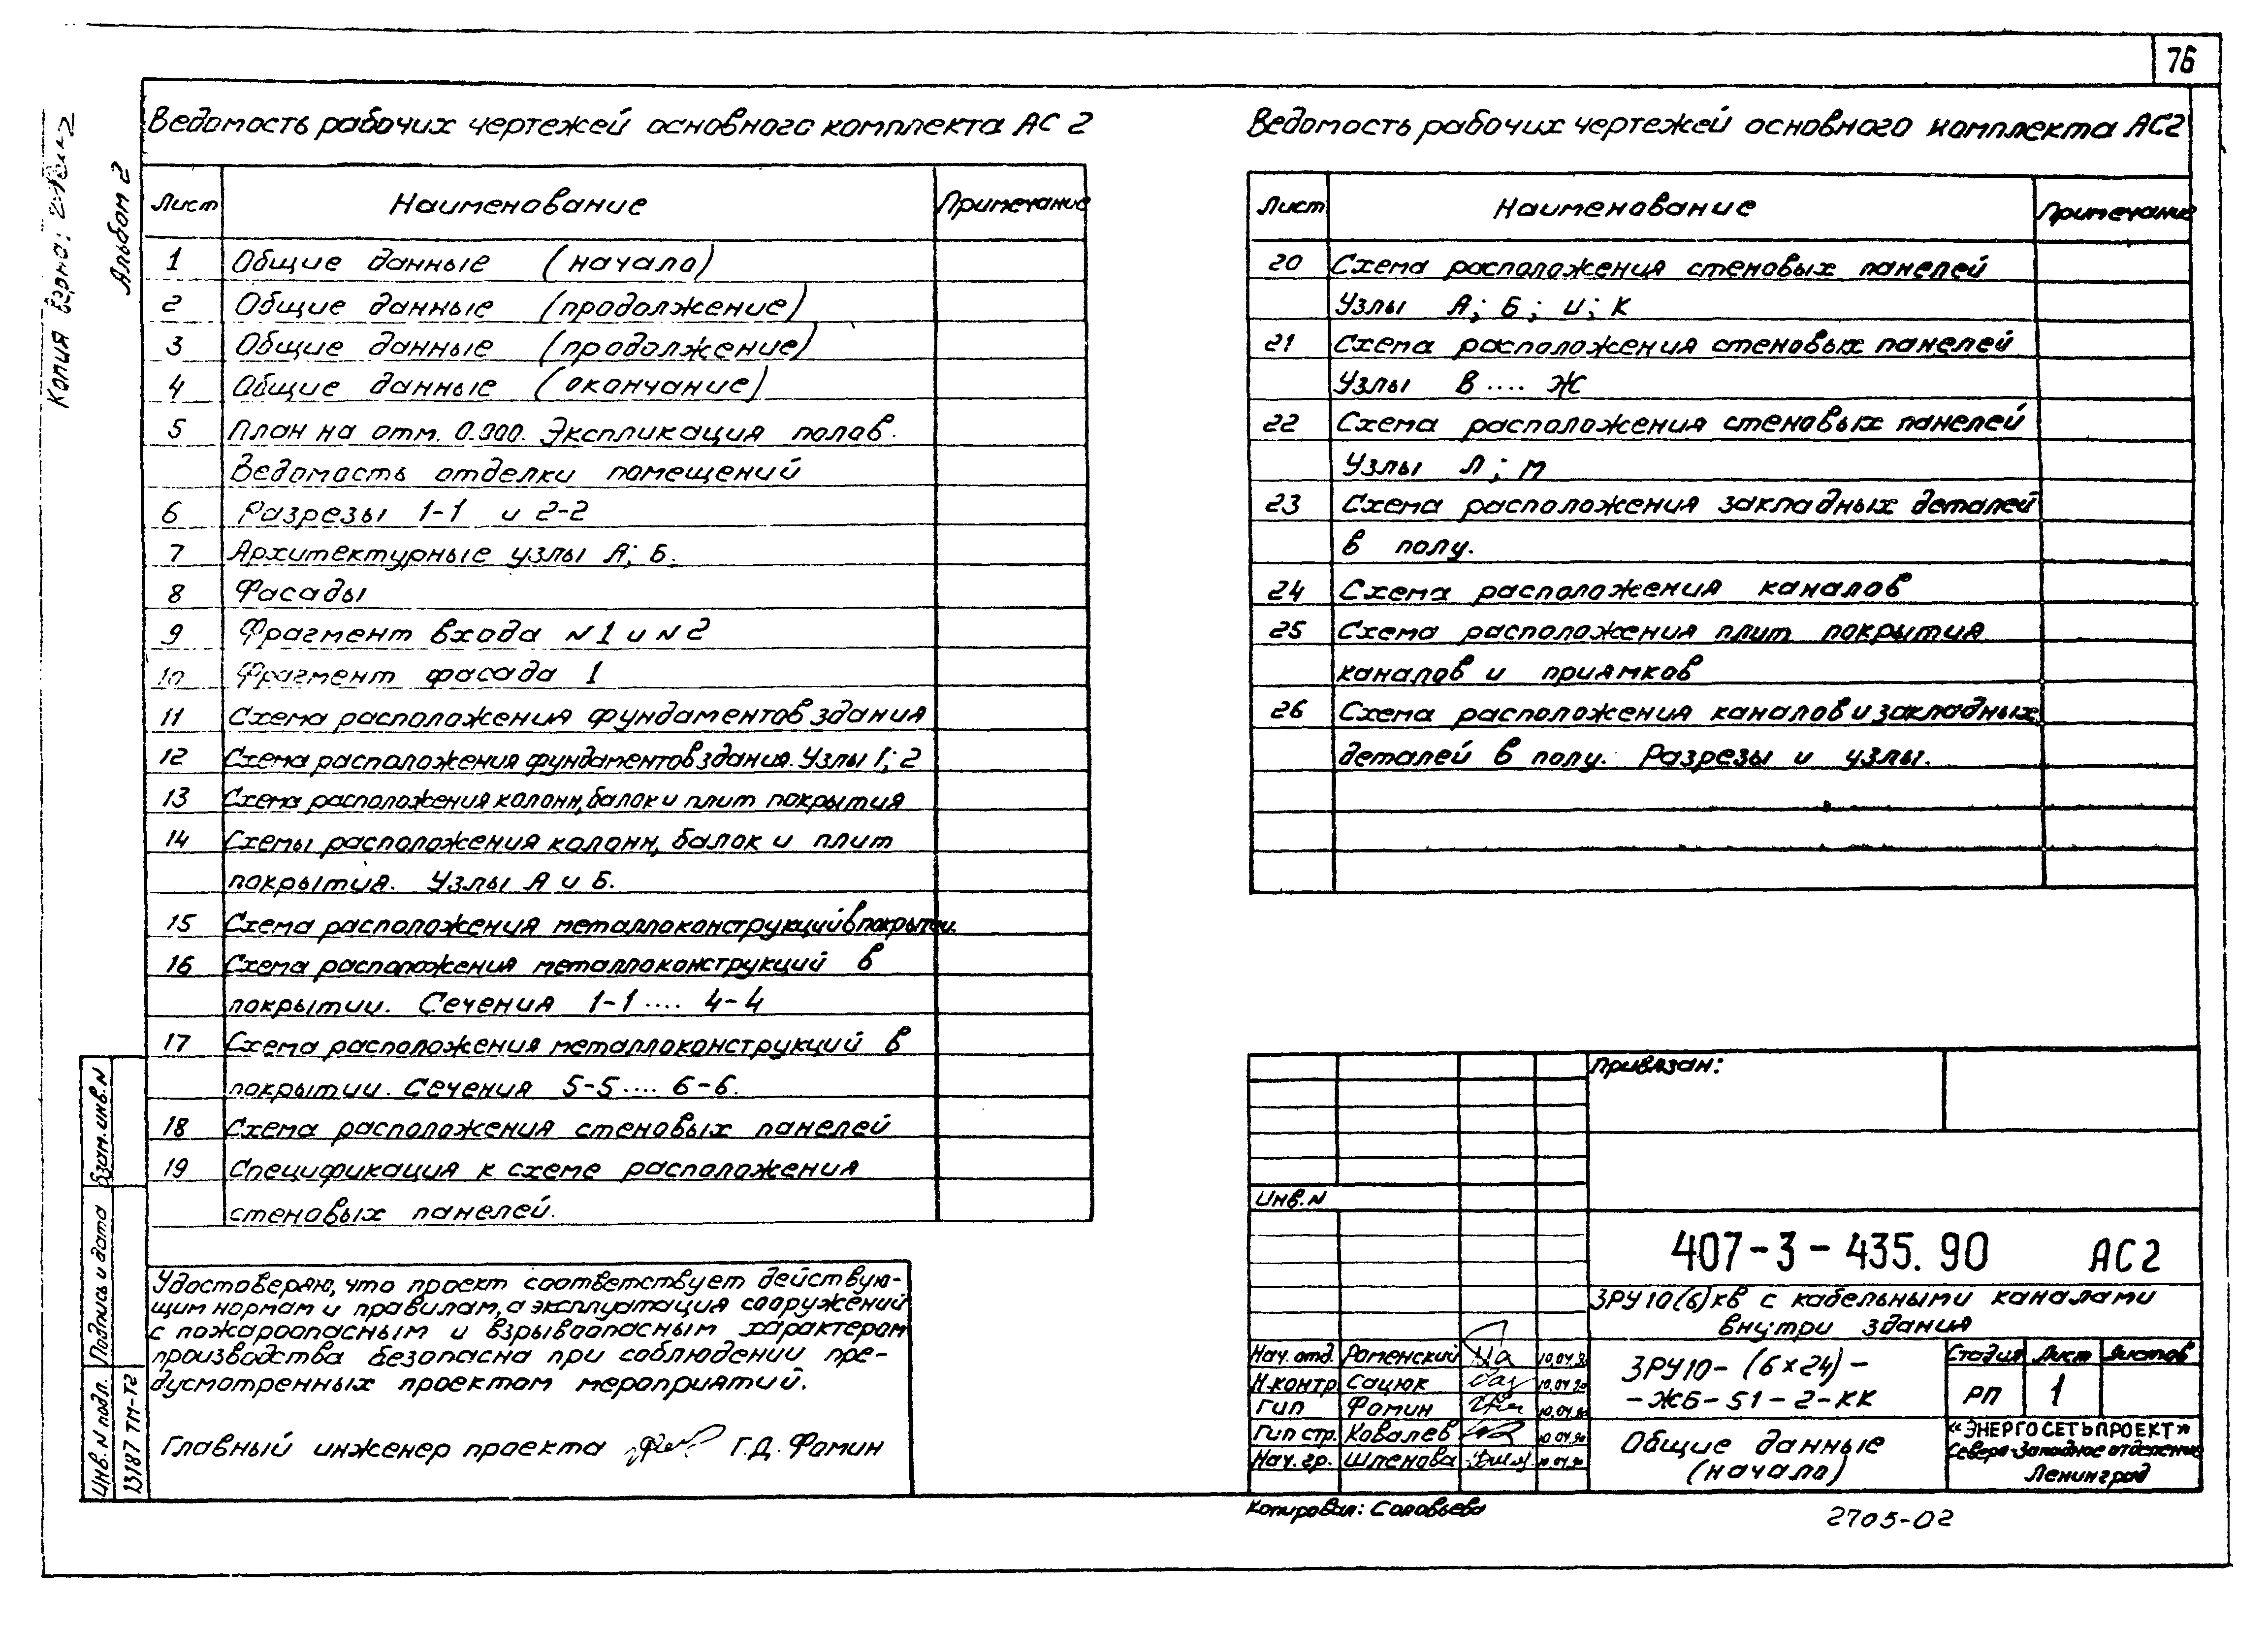 76
Копия верна:
Альбом 2
Ведомость рабочих чертежей основного комплекта АС 2
Лист Наименование Примечание
1 Общие данные (начало)
2 Общие данные (продолжение)
3 Общие данные (продолжение)
4 Общие данные (окончание)
5 План на отм. 0.000. Экспликация полов.
Ведомость отделки помещений
6 Разрезы 1-1 и 2-2
7 Архитектурные узлы А; Б.
8 Фасады
9 Фрагмент входа N1 и N2
10 Фрагмент фасада 1
11 Схема расположения фундаментов здания
12 Схема расположения фундаментов здания. Узлы 1; 2
13 Схема расположения колонн, балок и плит покрытия
14 Схемы расположения колонн, балок и плит
покрытия. Узлы А и Б.
15 Схема расположения металлоконструкций в покрытии.
16 Схема расположения металлоконструкций в
покрытии. Сечения 1-1 .... 4-4
17 Схема расположения металлоконструкций в
покрытии. Сечения 5-5 .... 6-6.
18 Схема расположения стеновых панелей
19 Спецификация к схеме расположения
стеновых панелей.
Удостоверяю, что проект соответствует действую-
щим нормам и правилам, а эксплуатация сооружений
с пожароопасным и взрывоопасным характером
производства безопасна при соблюдении пре-
дусмотренных проектом мероприятий.
Главный инженер проекта Г.Д. Фомин
Взам. инв. N
Подпись и дата
Инв. N подл.
13187 ТМ-Т2
Ведомость рабочих чертежей основного комплекта АС2
Лист Наименование Примечание
20 Схема расположения стеновых панелей
Узлы А; Б; И; К
21 Схема расположения стеновых панелей
Узлы В .... Ж
22 Схема расположения стеновых панелей
Узлы Л; М
23 Схема расположения закладных деталей
в полу.
24 Схема расположения каналов
25 Схема расположения плит покрытия
каналов и приямков
26 Схема расположения каналов и закладных
деталей в полу. Разрезы и узлы.
Привязан:
Инв. N
407-3-435.90 АС2
ЗРУ 10(6)кв с кабельными каналами
внутри здания
Нач. отд. Роменский
Н.контр Сацюк 10.04.90
Гип Фомин
Гип стр. Ковалев 10.04.90
Нач. гр. Шленова 10.04.90
ЗРУ10-(6×24)-
-ЖБ-51-2-КК
Стадия Лист Листов
РП 1
Общие данные
(начало)
«ЭНЕРГОСЕТЬПРОЕКТ»
Северо-Западное отделение
Ленинград
Копировал: Соловьева
2705-02